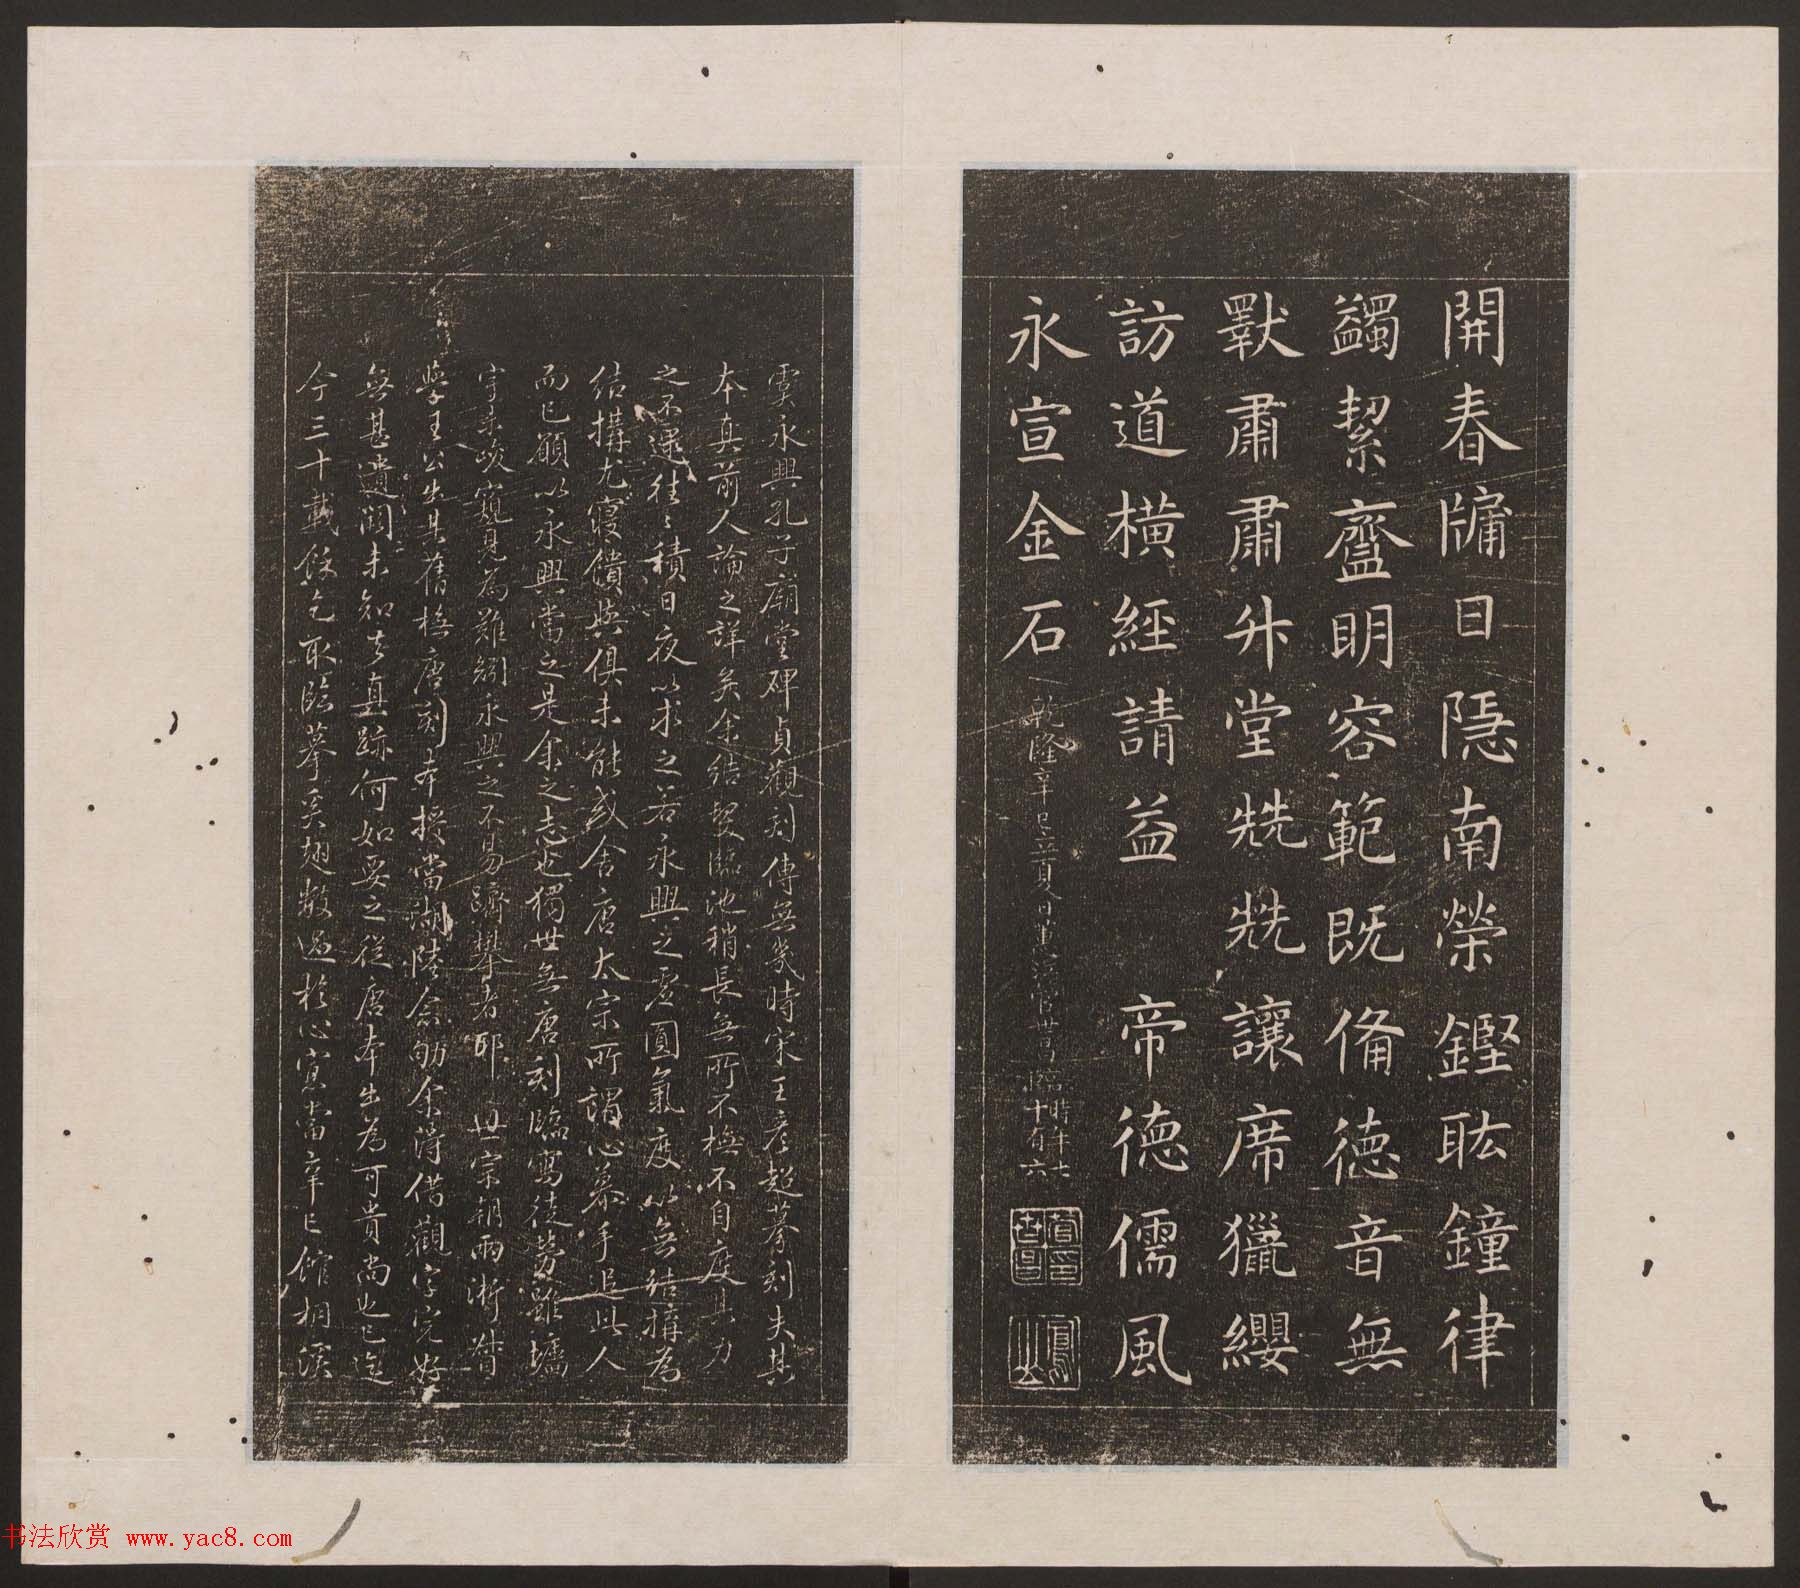 開春牖日隱南榮鏗耾鐘律
蠲絜齍明容範既俻德音無
斁肅肅升堂兟兟讓席獵纓
訪道橫經請益 帝德儒風
永宣金石
乾隆辛巳立夏日嵩溪管世昌臨時年七十有六
管世昌印
虞永興孔子廟堂碑貞觀刻傳無幾時宋王彥超摹刻失其
本真前人論之詳矣余結髮臨池稍長無所不橅不自度其力
之不逮往往積日夜以求之若永興之虛圓氣度以無結搆為
結搆尤寢饋與俱未能或舍唐太宗所謂心慕手追此人
而已願以永興當之是余之志也獨世無唐刻臨寫徒勞雖壚
字未窺見為難矧永興之不易躋攀者耶 世宗朝兩淛督
學王公出其舊橅唐刻本授當湖陸僉劬余得借觀字完好
無甚遺闕未知去真跡何如要之從唐本出為可貴尚也已迄
今三十載餘乞取臨摹奚翅數過於心寔當辛巳館桐溪
书法欣赏 www.yac8.com